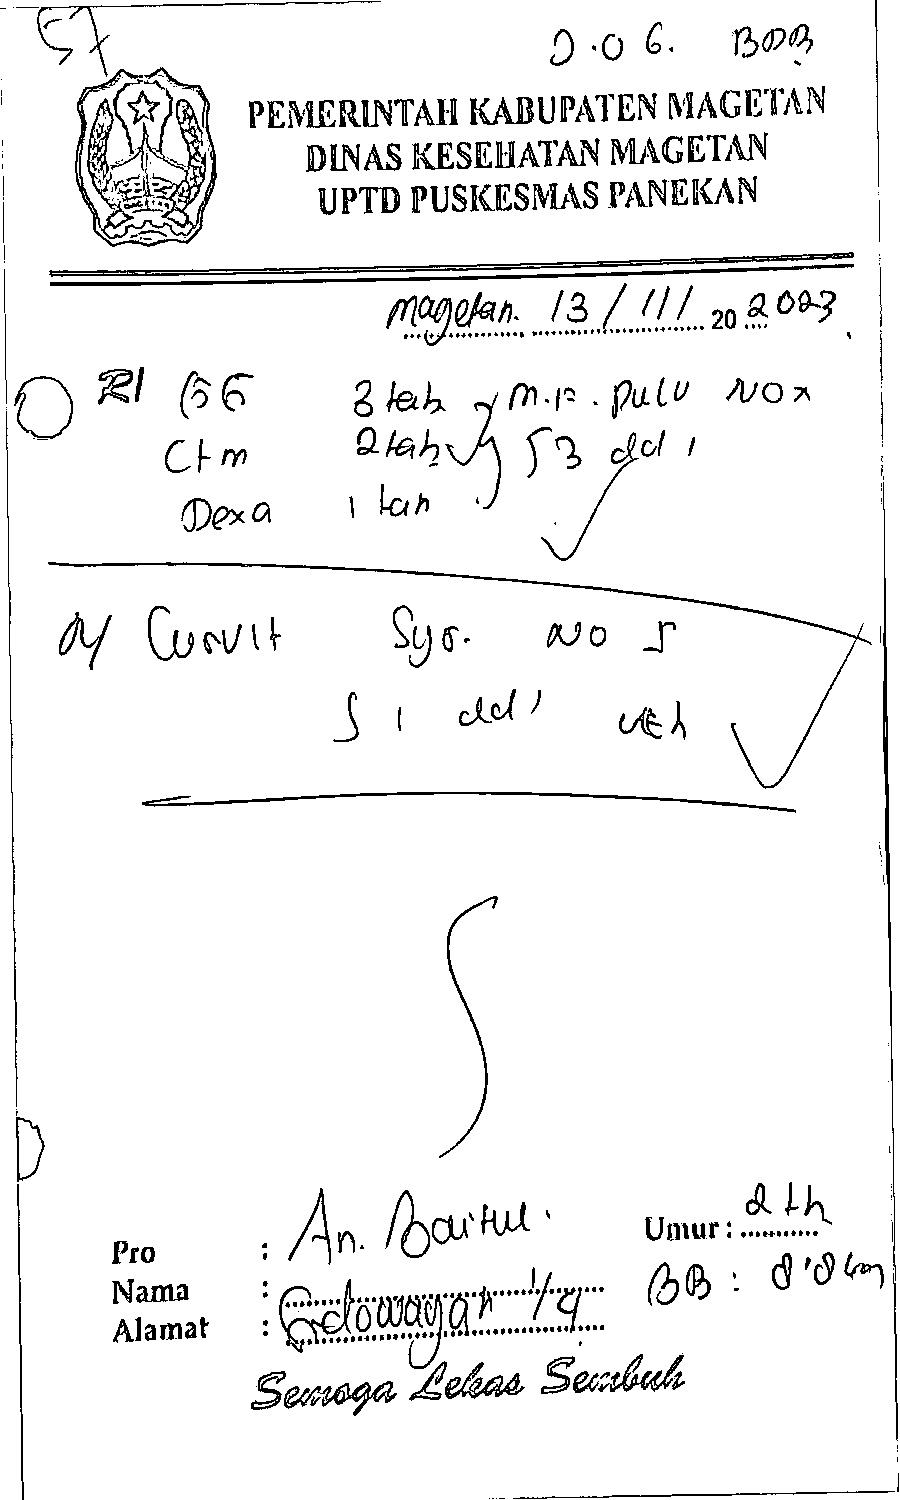 57
0.06. BDB
PEMERINTAH KABUPATEN MAGETAN
DINAS KESEHATAN MAGETAN
UPTD PUSKESMAS PANEKAN
Magetan. 13/III/ 20 2023
R/ GG 3 tab m.f. pulv No X
Ctm 2 tab S 3 dd 1
Dexa 1 tab
R/ Curvit Syr. No I
S 1 dd 1 cth
Pro : An. Baitul. Umur : 2 th
Nama : BB : 8'8
Alamat : Sidowayah 1/9
Semoga Lekas Sembuh